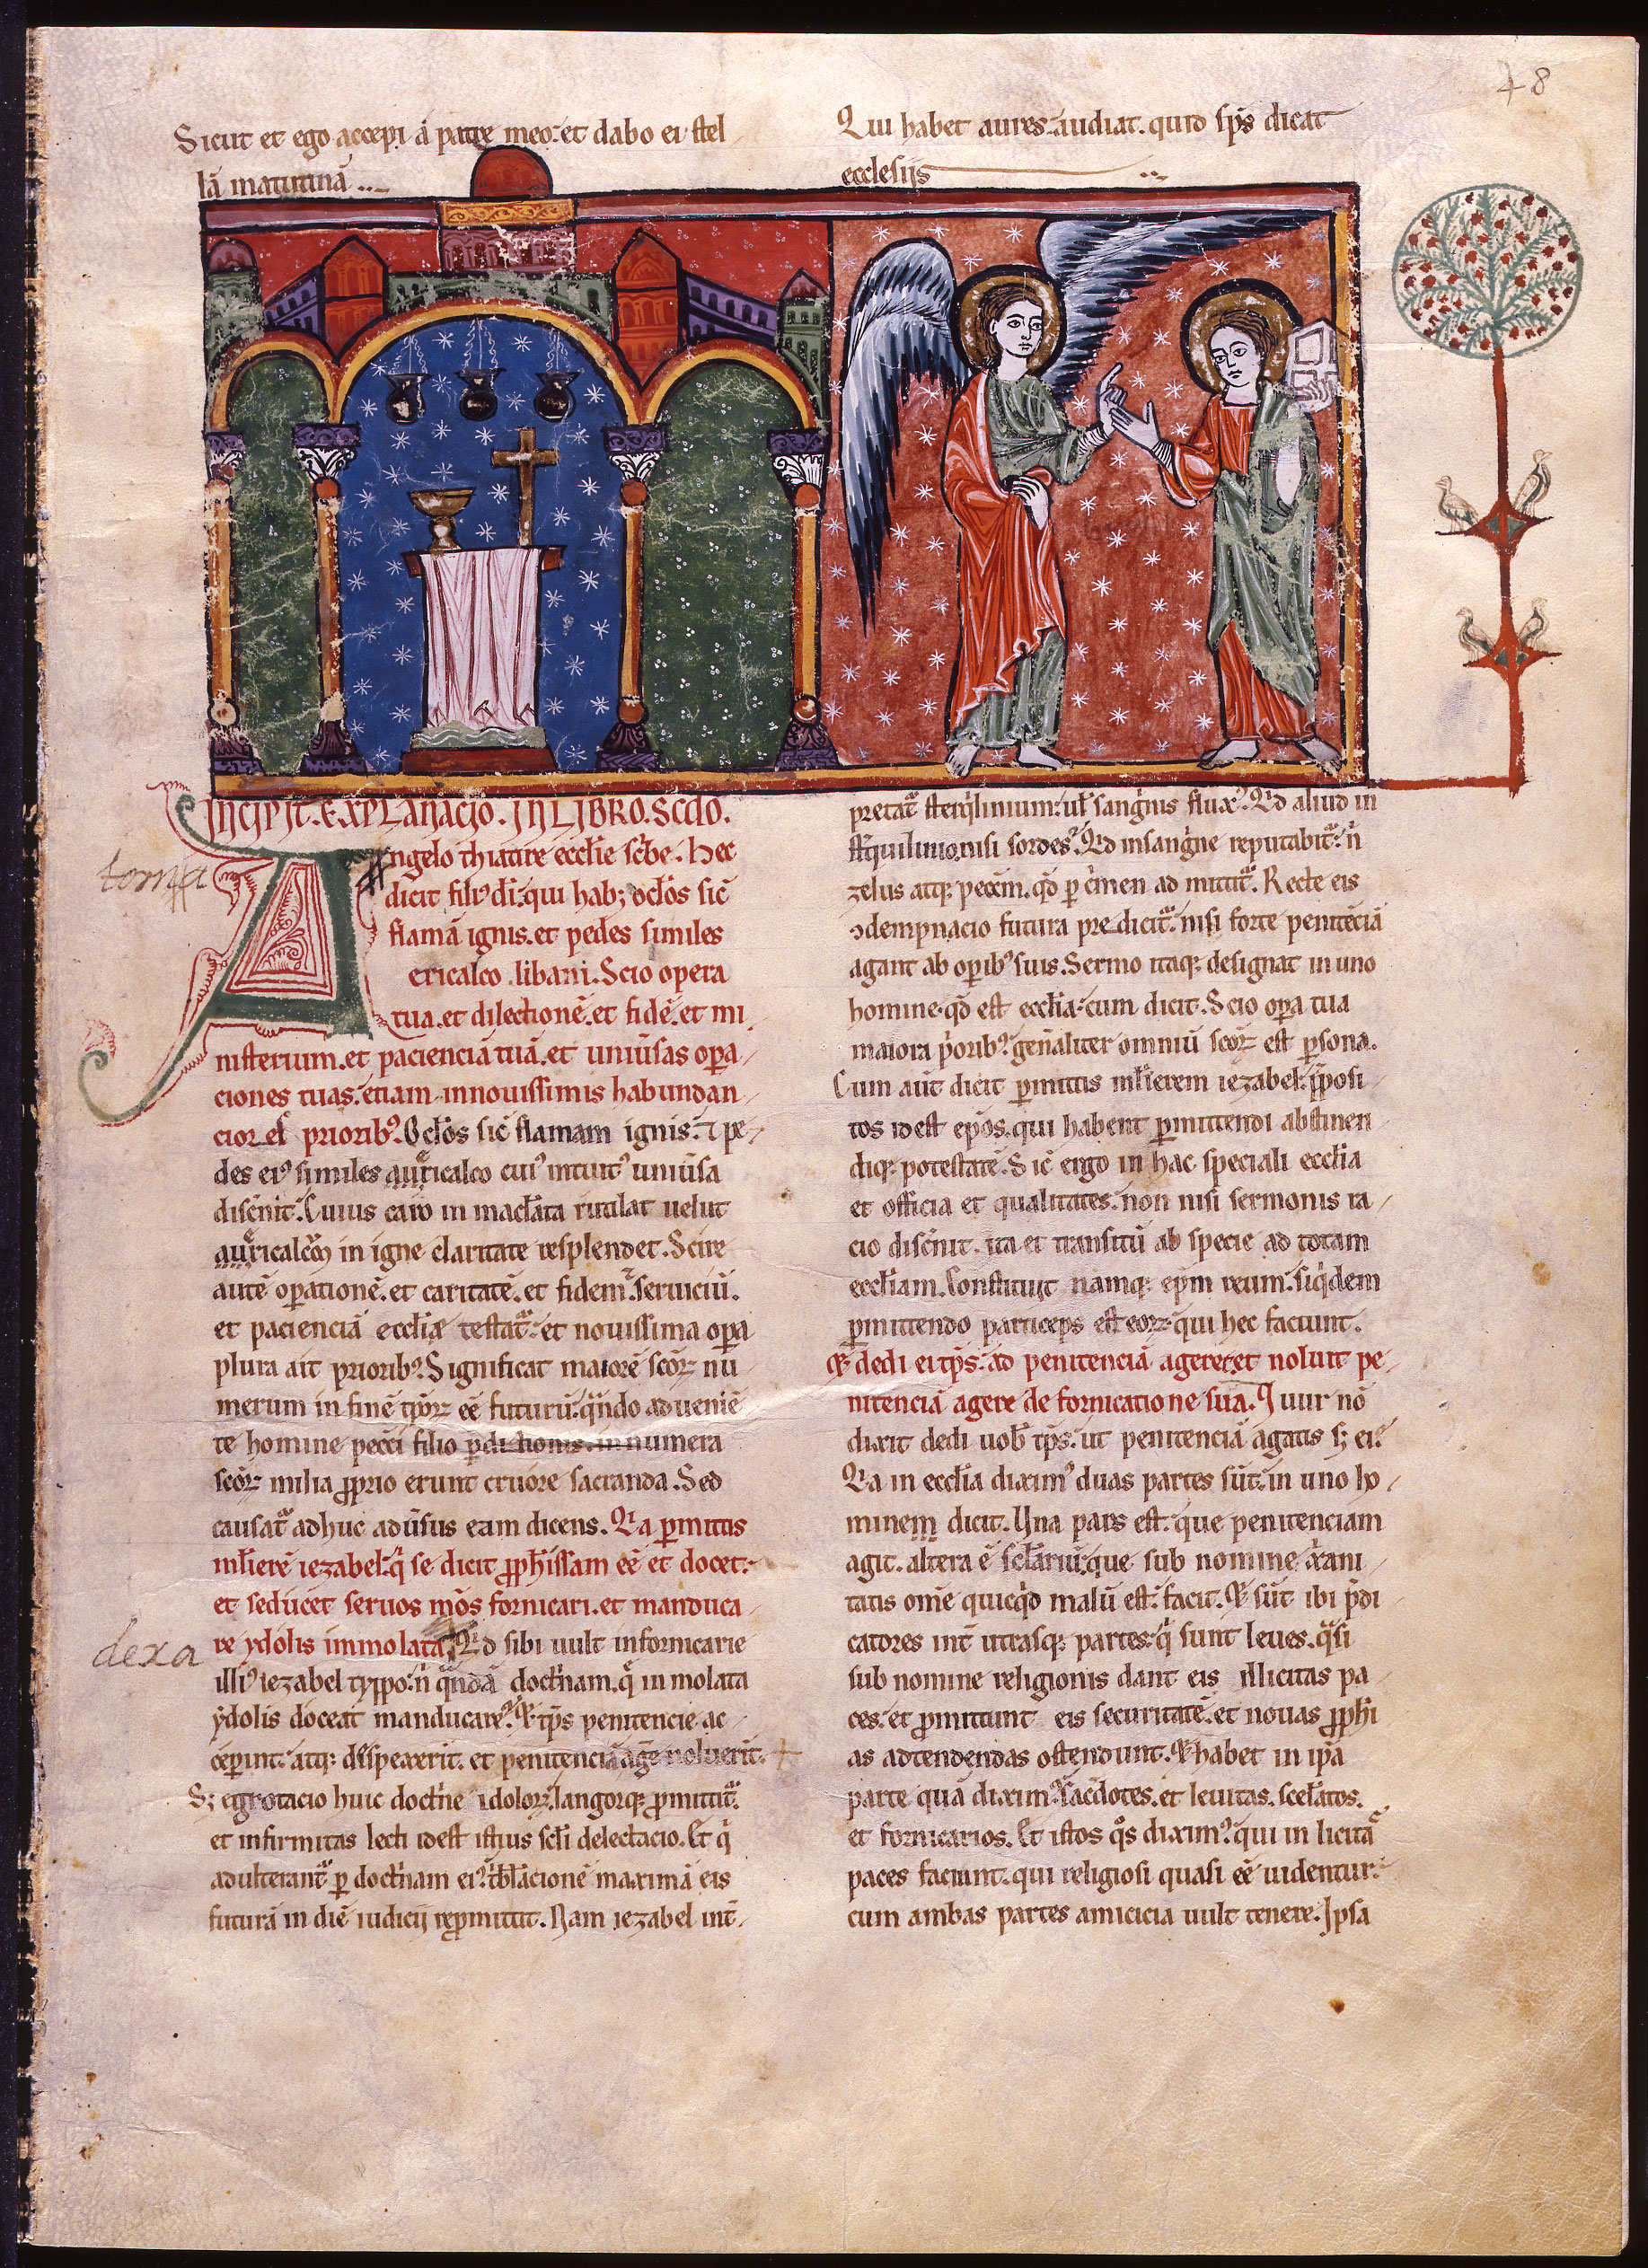 48
Sicut et ego accepi á patre meo: et dabo ei stel
lā matutinā
Qui habet aures audiat. quid sp̄s dicat
ecclesiis
INCIPIT. EXPLANACIO. IN LIBRO. SCD̄O.
tomja
Angelo thiatire ecclīe sc̄be. Hec
dicit filꝰ dī: qui hab; oclōs sic̄
flamā ignis. et pedes similes
ericalco libani. Scio opera
tua. et dilectionē. et fidē. et mi
nisterium. et pacienciā tuā. et uniūsas oꝑa
ciones tuas. etiam innouissimis habundan
cior eł priorib᷒. Oclōs sic̄ flamam ignis. ⁊ pe
des eiꝰ similes auricalco cuiꝰ intuitꝰ uniūsa
disc̄nit. Cuius caro in maclāta rutilat uelut
auricalcōn in igne claritate resplendet. Scire
autē oꝑationē. et caritatē. et fidem. seruiciū.
et pacienciā ecclīe testat᷑. et nouissima oꝑa
plura ait priorib᷒. Significat maiorē scōꝝ nu
merum in finē tp̄oꝝ eē futurū. qn̄do adueniē
te homine pecc̄i filio ꝑditionis. innumera
scōꝝ milia ꝓprio erunt cruore sacranda. Sed
causat᷑ adhuc adūsus eam dicens. Qa ꝑmittis
mlīerē iezabel. q̄ se dicit ꝓphīssam eē et docet.
et seducet seruos mōs fornicari. et manduca
re ydolis immolata. Qd sibi uult infornicarie
dexa
illiꝰ iezabel typpo. n̄ qn̄dā doctīnam. q̄ inmolata
ydolis doceat manducare. Q tp̄s penitencie ac
ceꝑint. atq; dispexerit. et penitenciā aḡe noluerit.
S; egrotacio huic doctīne idoloꝝ langorq; ꝓmittit᷑.
et infirmitas lecti idest istius scłi delectacio. Et q̄
adulterant᷑ ꝑ doctīnam eiꝰ. tblācionē maximā eis
futurā in diē iudicij reꝓmittit. Nam iezabel int̄
pretat᷑ sterq̄linium. uł sanḡnis fluxꝰ. Qd aliud in
sterquilinio nisi sordes. Qd insanḡne reputabit᷑. n̄
zelus atq; pecc̄m. qd ꝑ c̄men ad mittit᷑. Recte eis
ꝯdempnacio futura predicit᷑. nisi forte penitēciā
agant ab oꝑib᷒ suis. Sermo itaq; designat in uno
homine. qd est ecclīa. cum dicit. Scio oꝑa tua
maiora p̄orib᷒. gen̄aliter omniū scōꝝ est ꝑsona.
Cum aūt dicit ꝑmittis mlīerem iezabel. p̄posi
tos idest ep̄os. qui habent ꝑmittendi abstinen
diq; potestatē. Sic̄ ergo in hac speciali ecclīa
et officia et qualitates. non nisi sermonis ra
cio disc̄nit. ita et transitū ab specie ad totam
ecclīam. Constituit namq; ep̄m reum. siq̄dem
ꝑmittendo particeps est eoꝝ. qui hec faciunt.
Q dedi ei tp̄s. ad penitenciā agere. et noluit pe
nitenciā agere de fornicatione sua. Q uur nō
dixit dedi uob᷒ tp̄s. ut penitenciā agatis s; ei.
Qa in ecclīa diximꝰ duas partes sūt. in uno ho
minem dicit. Una pars est. que penitenciam
agit. altera ē scłarū. que sub nomine xp̄ani
tatis omē quicq̄d malū est. facit. Q sūt ibi p̄di
catores int̄ utrasq; partes. q̄ sunt leues. q̄si
sub nomine religionis dant eis illicitas pa
ces. et ꝓmittunt eis securitatē. et nouas ꝓphī
as adtendendas ostendunt. Q habet in ip̄a
parte quā diximꝰ sac̄dotes. et leuitas. scelāros.
et fornicarios. Et istos q̄s diximꝰ. qui in licitā
paces faciunt. qui religiosi quasi eē uidentur.
cum ambas partes amicicia uult tenere. Ipsa